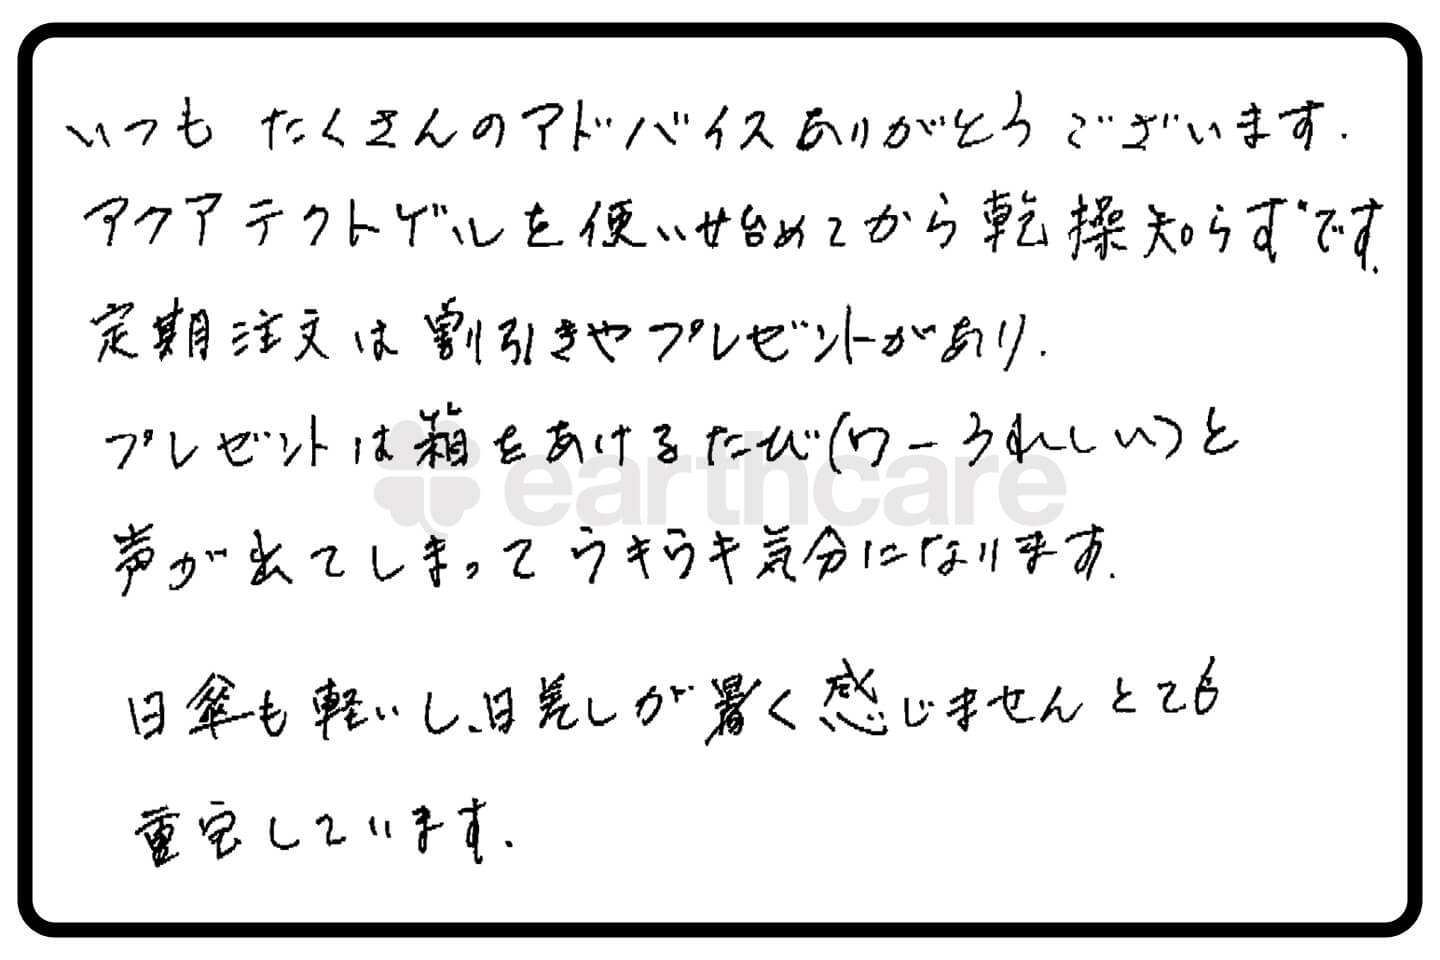 いつも たくさんのアドバイスありがとうございます.
アクアテクトゲルを使い始めてから乾操知らずです.
定期注文は割引きやプレゼントがあり.
プレゼントは箱をあけるたび(ワーうれしい)と
earthcare
声が出てしまってウキウキ気分になります.
日傘も軽いし、日差しが暑く感じませんとても
重宝しています.